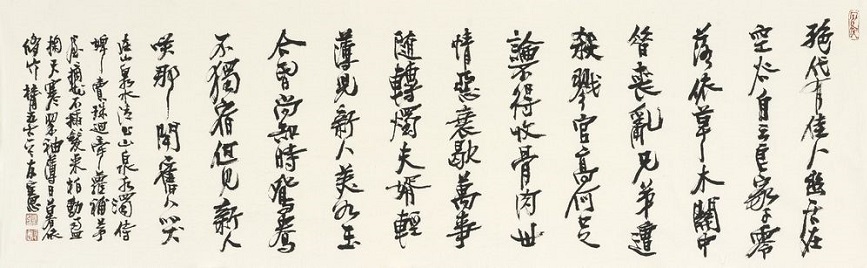 絕代有佳人幽居在
空谷自云良家子零
落依草木關中
昔喪亂兄弟遭
殺戮官高何足
論不得收骨肉世
情惡衰歇萬事
隨轉燭夫婿輕
薄兒新人美如玉
合昏尚知時鴛鴦
不獨宿但見新人
笑那聞舊人哭
在山泉水清出山泉水濁侍
婢賣珠迴牽蘿補茅
屋摘花不插髮采柏動盈
掬天寒翠袖薄日暮依
修竹